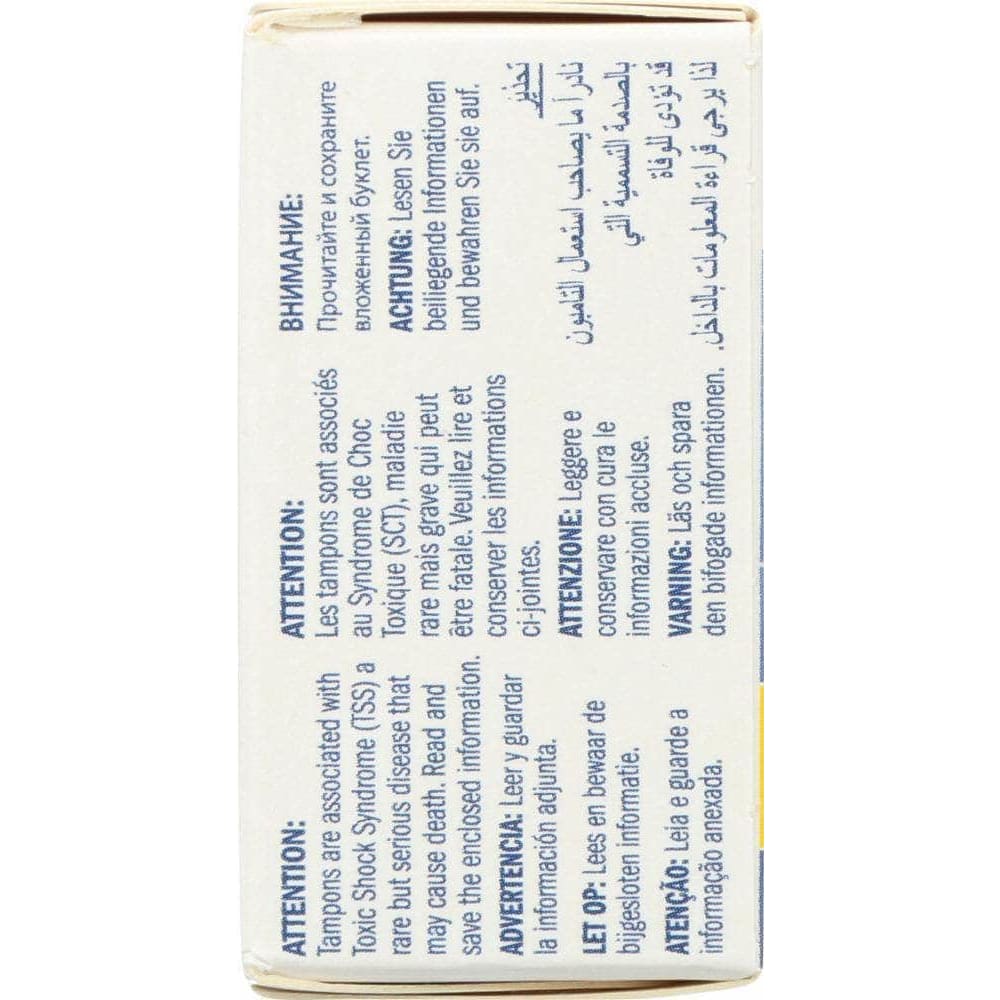 ATTENTION:
Tampons are associated with
Toxic Shock Syndrome (TSS) a
rare but serious disease that
may cause death. Read and
save the enclosed information.
ADVERTENCIA: Leer y guardar
la información adjunta.
LET OP: Lees en bewaar de
bijgesloten informatie.
ATENÇÃO: Leia e guarde a
informação anexada.
ATTENTION:
Les tampons sont associés
au Syndrome de Choc
Toxique (SCT), maladie
rare mais grave qui peut
être fatale. Veuillez lire et
conserver les informations
ci-jointes.
ATTENZIONE: Leggere e
conservare con cura le
informazioni accluse.
VARNING: Läs och spara
den bifogade informationen.
ВНИМАНИЕ:
Прочитайте и сохраните
вложенный буклет.
ACHTUNG: Lesen Sie
beiliegende Informationen
und bewahren Sie sie auf.
تحذير
نادرا ما يصاحب استعمال التامبون
بالصدمة التسممية التي
قد تؤدى للوفاة
لذا يرجى قراءة المعلومات بالداخل.